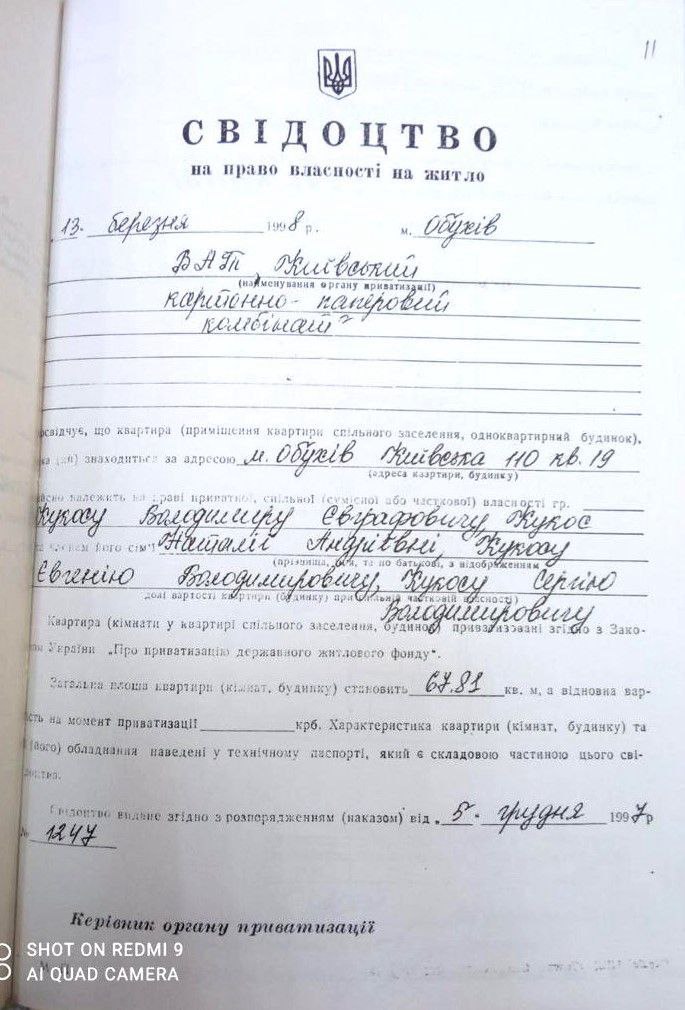 11
СВІДОЦТВО
на право власності на житло
13. березня 1998 р. м. Обухів
ВАТ „Київський
(найменування органу приватизації)
картонно-паперовий
комбінат"
освідчує, що квартира (приміщення квартири спільного заселення, одноквартирний будинок),
знаходиться за адресою м. Обухів Київська 110 кв. 19
(адреса квартири, будинку)
дійсно належить на праві приватної, спільної (сумісної або часткової) власності гр.
Кукосу Володимиру Євграфовичу, Кукос
та членам його сім'ї Наталії Андріївні, Кукосу
(прізвище, ім'я, та по батькові, з відображенням
Євгенію Володимировичу, Кукосу Сергію
долі вартості квартири (будинку) при спільній частковій власності)
Володимировичу
Квартира (кімнати у квартирі спільного заселення, будинок) приватизовані згідно з Зако-
ном України „Про приватизацію державного житлового фонду".
Загальна площа квартири (кімнат, будинку) становить 67,81 кв. м, а відновна вар-
ість на момент приватизації крб. Характеристика квартири (кімнат, будинку) та
(його) обладнання наведені у технічному паспорті, який є складовою частиною цього сві-
доцтва.
Свідоцтво видане згідно з розпорядженням (наказом) від „5" грудня 1997 р
№ 1247
Керівник органу приватизації
SHOT ON REDMI 9
AI QUAD CAMERA